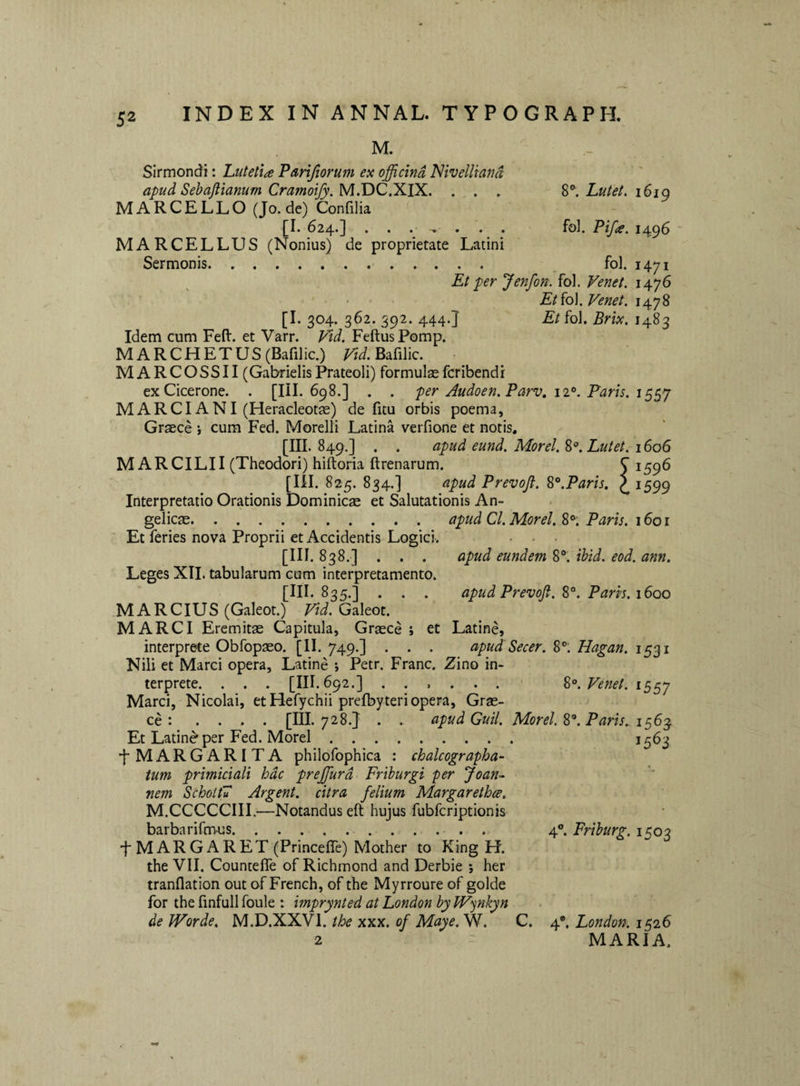 52 INDEX IN ANNAL. TYPOGRAPH.
M.
Sirmondi : Lutetiæ Parisiorum ex officinâ Nivellianâ
apud Sebaſtianum Cramoiſy. M.DC.XIX. . . . 8°. Lutet. 1619
MARCELLO (Jo. de) Conſilia
[I. 624.] . . . . . . . . fol. Piſæ. 1496
MARCELLUS (Nonius) de proprietate Latini
Sermonis. . . . . . . . . . . . . fol. 1471
Et per Jenſon. fol. Venet. 1476
Et fol. Venet. 1478
[I. 304. 362. 392. 444.] Et fol. Brix. 1483
Idem cum Feſt. et Varr. Vid. Feſtus Pomp.
MARCHETUS (Baſilic.) Vid. Baſilic.
MARCOSSII (Gabrielis Prateoli) formulæ ſcribendi
ex Cicerone. . [III. 698.] . . per Audoen. Parv. 12°. Paris. 1557
MARCIANI (Heracleotæ) de ſitu orbis poema,
Græcè ; cum Fed. Morelli Latinâ verſione et notis.
[III. 849.] . . apud eund. Morel. 8°. Lutet. 1606
MARCILII (Theodori) hiſtoria ſtrenarum. { 1596
[III. 825. 834.] apud Prevoſt. 8°. Paris. { 1599
Interpretatio Orationis Dominicæ et Salutationis An-
gelicæ. . . . . . . . . . . apud Cl. Morel. 8°. Paris. 1601
Et ſeries nova Proprii et Accidentis Logici.
[III. 838.] . . . apud eundem 8°. ibid. eod. ann.
Leges XII. tabularum cum interpretamento.
[III. 835.] . . . apud Prevoſt. 8°. Paris. 1600
MARCIUS (Galeot.) Vid. Galeot.
MARCI Eremitæ Capitula, Græcè ; et Latinè,
interprete Obſopæo. [II. 749.] . . . apud Secer. 8°. Hagan. 1531
Nili et Marci opera, Latinè ; Petr. Franc. Zino in-
terprete. . . . [III. 692.] . . . . . . 8°. Venet. 1557
Marci, Nicolai, et Heſychii preſbyteri opera, Græ-
cè : . . . . . [III. 728.] . . apud Guil. Morel. 8°. Paris. 1563
Et Latinè per Fed. Morel . . . . . . . . . 1563
† MARGARITA philoſophica : chalcographa-
tum primiciali hâc preſſurâ Friburgi per Joan-
nem Scholtū Argent. citra feſtum Margarethæ.
M.CCCCCIII.—Notandus eſt hujus ſubſcriptionis
barbariſmus. . . . . . . . . . . . 4°. Friburg. 1503
† MARGARET (Princeſſe) Mother to King H.
the VII. Counteſſe of Richmond and Derbie ; her
tranſlation out of French, of the Myrroure of golde
for the ſinfull ſoule : imprynted at London by Wynkyn
de Worde. M.D.XXVI. the xxx. of Maye. W. C. 4°. London. 1526
2 MARIA.